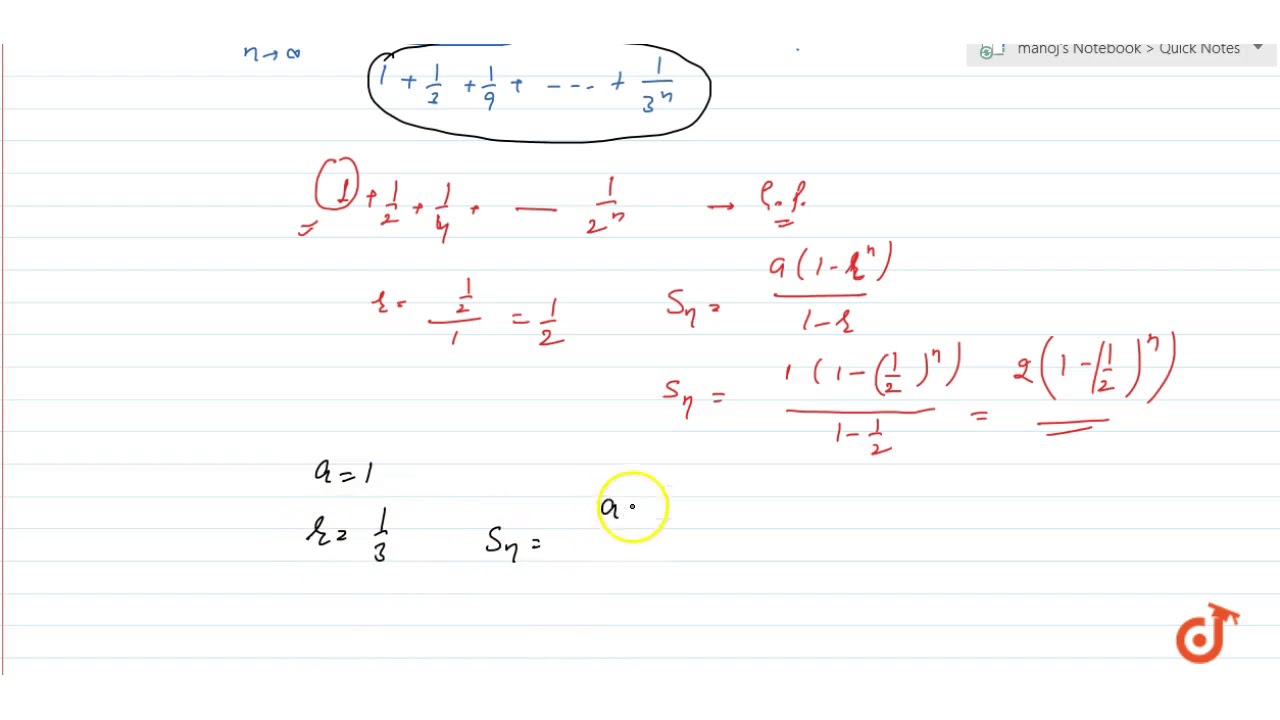 manoj's Notebook > Quick Notes
n→∞
1 + 1/3 + 1/9 + ---- + 1/3ⁿ
1 + 1/2 + 1/4 + — 1/2ⁿ → G.P.
r = (1/2)/1 = 1/2
Sₙ = a(1-rⁿ)/(1-r)
Sₙ = 1(1-(1/2)ⁿ)/(1-1/2) = 2(1-(1/2)ⁿ)
a = 1
r = 1/3
Sₙ = a